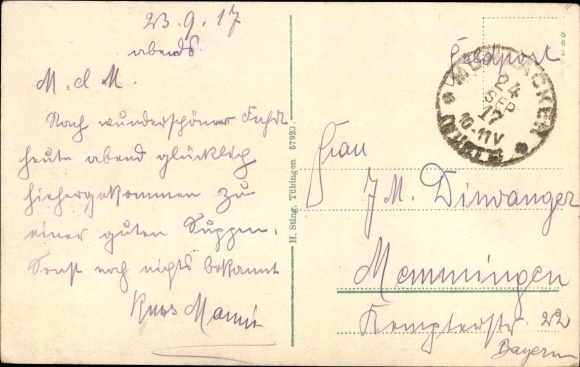 23.9.17
abends.
M. d. M.
Nach wunderschöner Fahrt
heute abend glücklich
hiehergekommen zu
einer guten Suppe.
Sonst noch nichts bekannt
Kuss
H. Sting, Tübingen 57923.
Feldpost
MÜHLACKER
24
SEP
17
10-11V
Frau
J. M. Dinvanger
Memmingen
Kempterstr. 22
Bayern